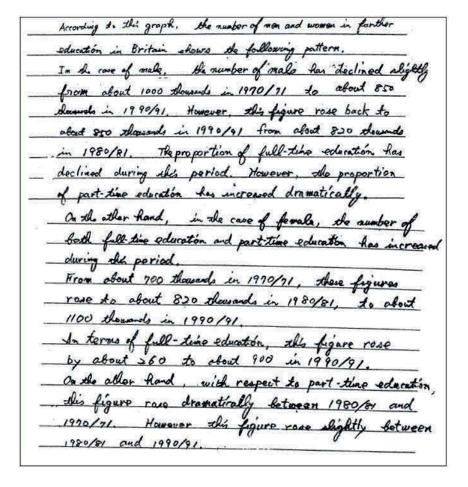 According to this graph, the number of men and women in farther
education in Britain shows the following pattern.
In the case of male, the number of male has declined slightly
from about 1000 thousands in 1970/71 to about 850
thousands in 1990/91. However, this figure rose back to
about 850 thousands in 1990/91 from about 820 thousands
in 1980/81. The proportion of full-time education has
declined during this period. However, the proportion
of part-time education has increased dramatically.
On the other hand, in the case of female, the number of
both full-time education and part-time education has increased
during this period.
From about 700 thousands in 1970/71, these figures
rose to about 820 thousands in 1980/81, to about
1100 thousands in 1990/91.
In terms of full-time education, this figure rose
by about 260 to about 900 in 1990/91.
On the other hand, with respect to part-time education,
this figure rose dramatically between 1980/81 and
1970/71. However this figure rose slightly between
1980/81 and 1990/91.